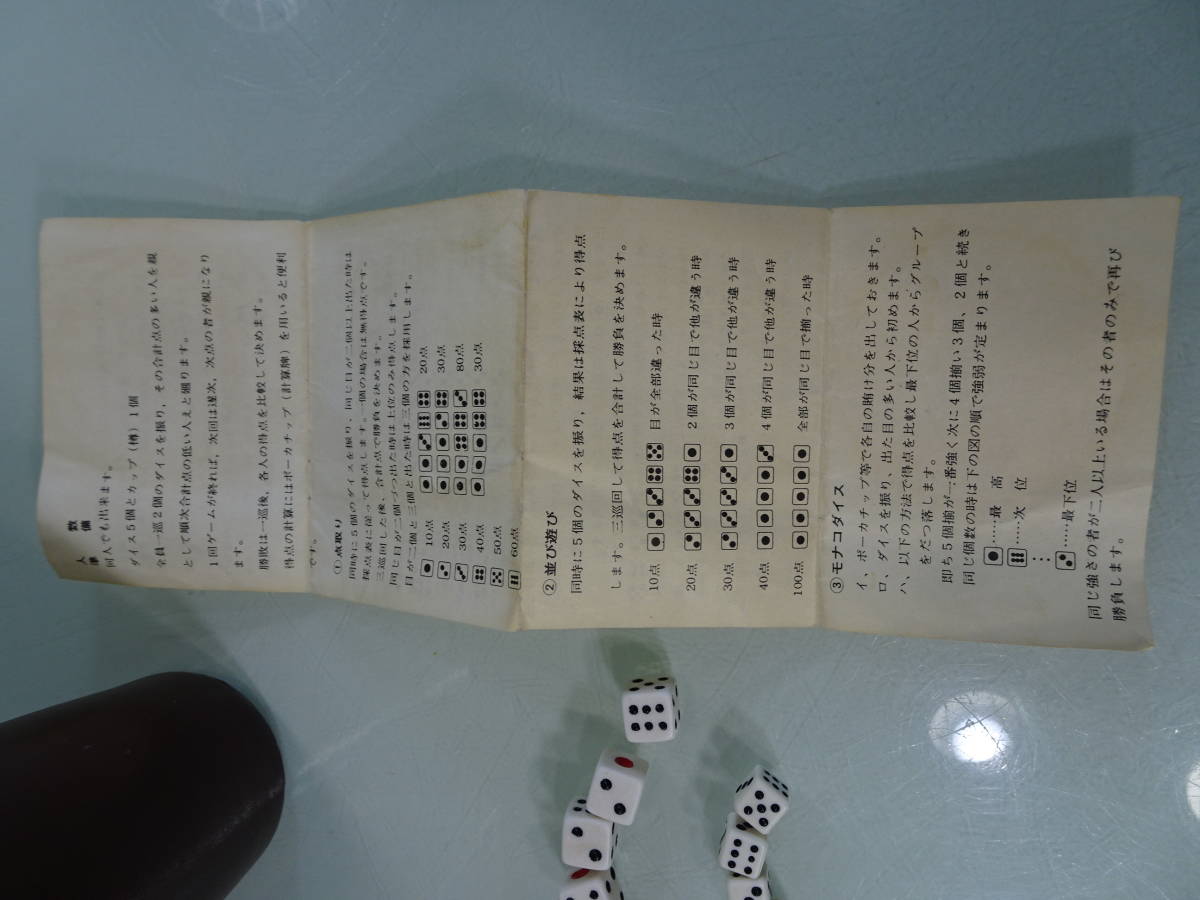 人数
何人でも出来ます。
準備
ダイス5個とカップ(樽)1個
全員一巡2個のダイスを振り、その合計点の多い人を親
として順次合計点の低い人えと廻ります。
1回ゲームが終れば、次回は逐次、次点の者が親になり
ます。
勝敗は一巡後、各人の得点を比較して決めます。
得点の計算にはポーカチップ(計算牌)を用いると便利
です。
①点取り
同時に5個のダイスを振り、同じ目が二個以上出た時は
採点表に従って得点します。一個の場合は無得点です。
三巡回した後、合計点で勝負を決めます。
同じ目が二個づつ出た時は上位のみ得点します。
目が二個と三個と出た時は三個の方を採用します。
10点 20点
20点 30点
30点 80点
40点 30点
50点
60点
②並び遊び
同時に5個のダイスを振り、結果は採点表により得点
します。三巡回して得点を合計して勝負を決めます。
10点 目が全部違った時
20点 2個が同じ目で他が違う時
30点 3個が同じ目で他が違う時
40点 4個が同じ目で他が違う時
100点 全部が同じ目で揃った時
③モナコダイス
イ、ポーカチップ等で各自の賭け分を出しておきます。
ロ、ダイスを振り、出た目の多い人から初めます。
ハ、以下の方法で得点を比較し最下位の人からグループ
をだつ落します。
即ち5個揃が一番強く次に4個揃い3個、2個と続き
同じ個数の時は下の図の順で強弱が定まります。
……最 高
……次 位
:
:
……最下位
同じ強さの者が二人以上いる場合はその者のみで再び
勝負します。